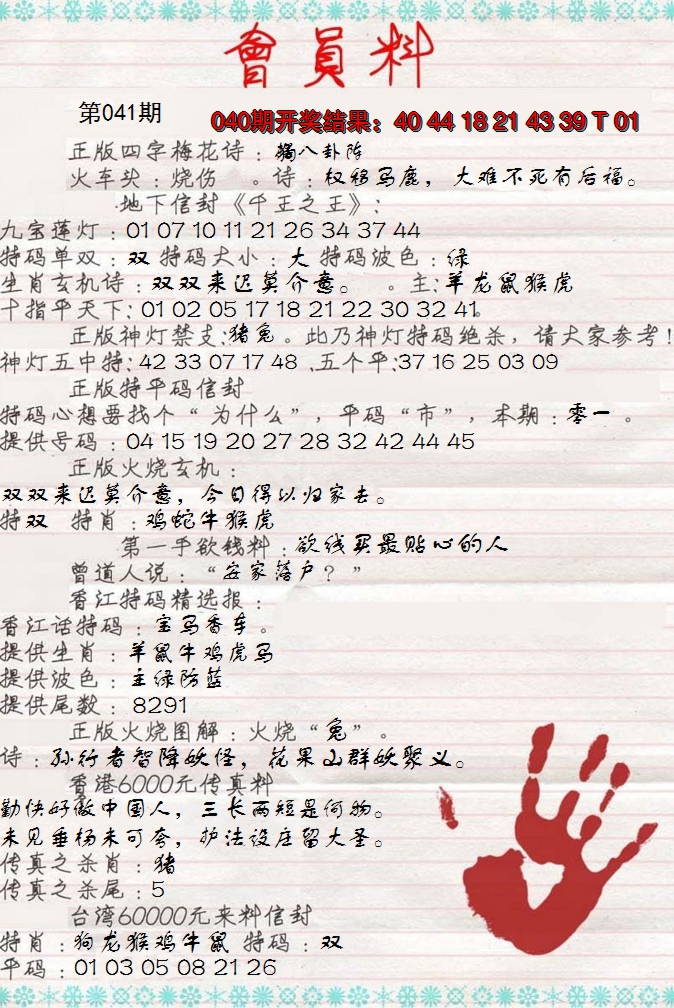 會員料
第041期
040期开奖结果：40 44 18 21 43 39 T 01
正版四字梅花诗：摛八卦阵
火车头：烧伤 。诗：权移马鹿，大难不死有后福。
地下信封《千王之王》：
九宝莲灯：01 07 10 11 21 26 34 37 44
特码单双：双 特码大小：大 特码波色：绿
生肖玄机诗：双双来迟莫介意。 。主：羊龙鼠猴虎
十指平天下：01 02 05 17 18 21 22 30 32 41
正版神灯禁支：猪兔。此乃神灯特码绝杀，请大家参考！
神灯五中特：42 33 07 17 48 、五个平：37 16 25 03 09
正版特平码信封
特码心想要找个“为什么”，平码“市”，本期：零一 。
提供号码：04 15 19 20 27 28 32 42 44 45
正版火烧玄机：
双双来迟莫介意，今日得以归家去。
特双 特肖：鸡蛇牛猴虎
第一手欲钱料：欲钱买最贴心的人
曾道人说：“安家落户？”
香江特码精选报：
香江话特码：宝马香车。
提供生肖：羊鼠牛鸡虎马
提供波色：主绿防蓝
提供尾数：8291
正版火烧图解：火烧“兔”。
诗：孙行者智降妖怪，花果山群妖聚义。
香港6000元传真料
勤快好做中国人，三长两短是何物。
未见垂杨未可夸，护法设庄留大圣。
传真之杀肖：猪
传真之杀尾：5
台湾60000元来料信封
特肖：狗龙猴鸡牛鼠 特码：双
平码：01 03 05 08 21 26